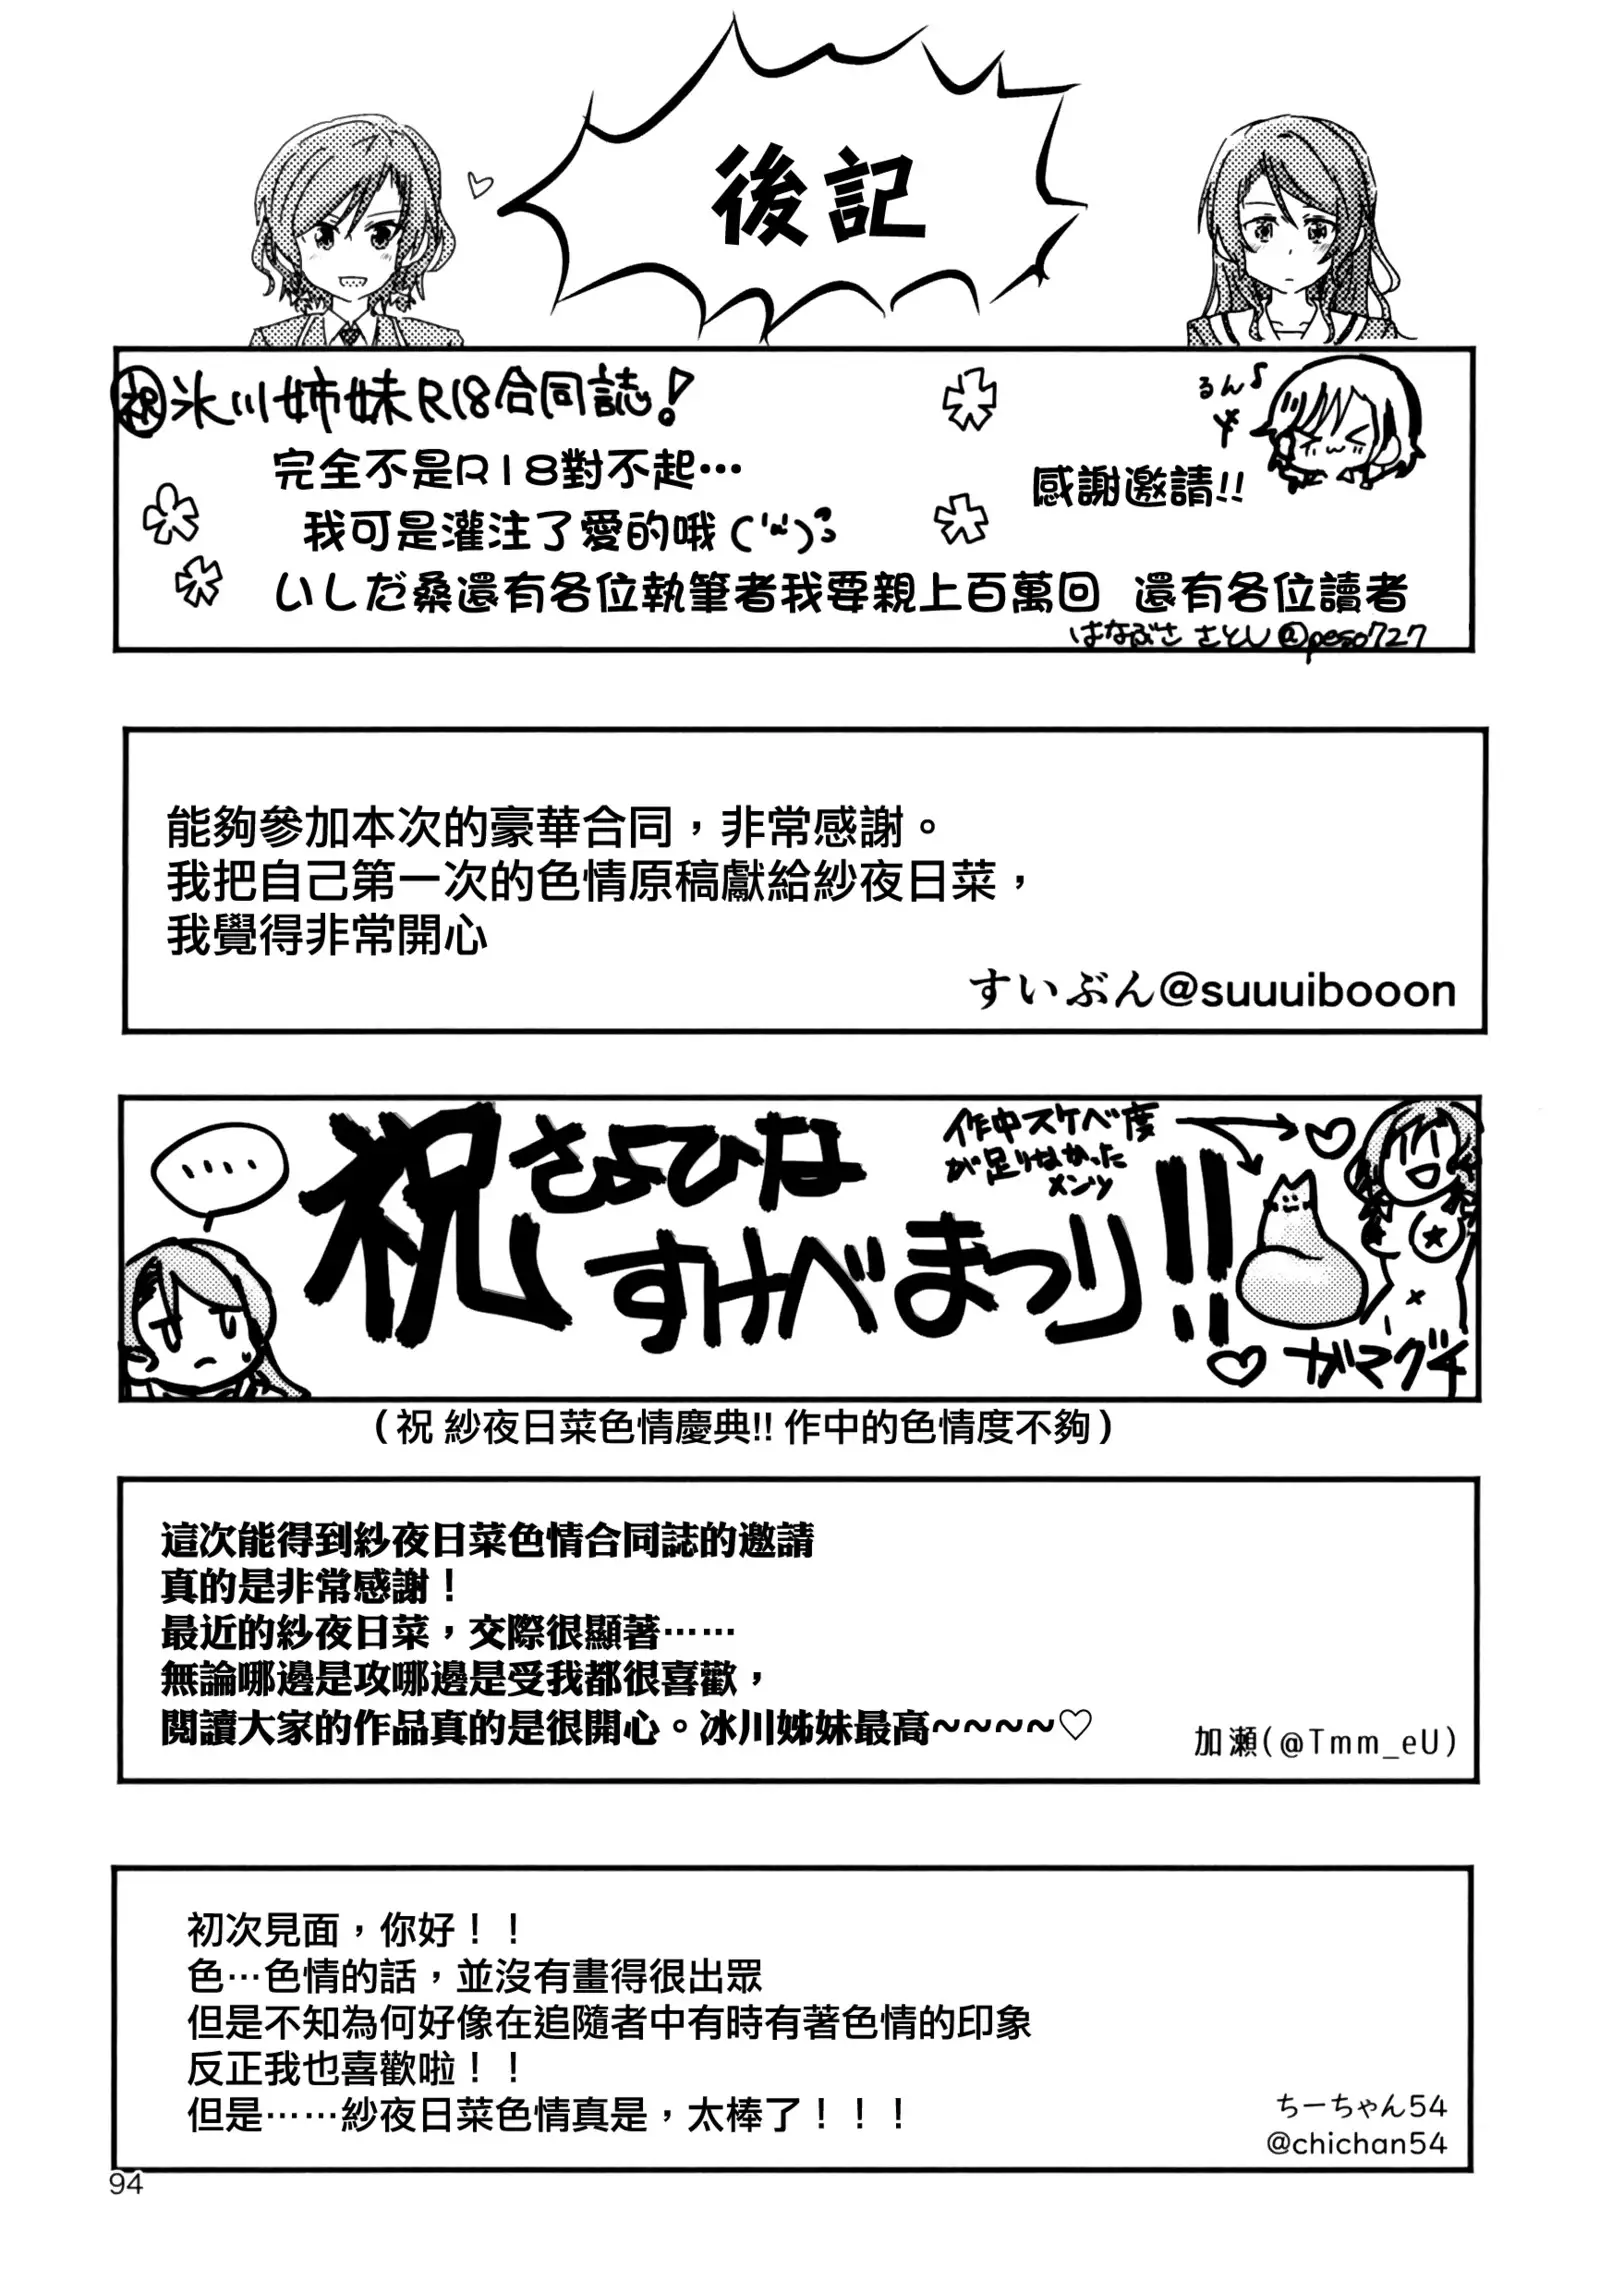 後記
祝 氷川姉妹R18合同誌!
るん♪
完全不是R18對不起…
感謝邀請!!
我可是灌注了愛的哦
いしだ桑還有各位執筆者我要親上百萬回 還有各位讀者
はなぶさ さとし@peso727
能夠參加本次的豪華合同，非常感謝。
我把自己第一次的色情原稿獻給紗夜日菜，
我覺得非常開心
すいぶん@suuuibooon
....
祝 さよひな
すけべまつり!!
作中スケベ度
が足りなかった
メンツ
ガマグチ
（祝 紗夜日菜色情慶典!! 作中的色情度不夠）
這次能得到紗夜日菜色情合同誌的邀請
真的是非常感謝！
最近的紗夜日菜，交際很顯著……
無論哪邊是攻哪邊是受我都很喜歡，
閱讀大家的作品真的是很開心。冰川姊妹最高~~~~♡
加瀬(@Tmm_eU)
初次見面，你好！！
色…色情的話，並沒有畫得很出眾
但是不知為何好像在追隨者中有時有著色情的印象
反正我也喜歡啦！！
但是……紗夜日菜色情真是，太棒了！！！
ちーちゃん54
@chichan54
94